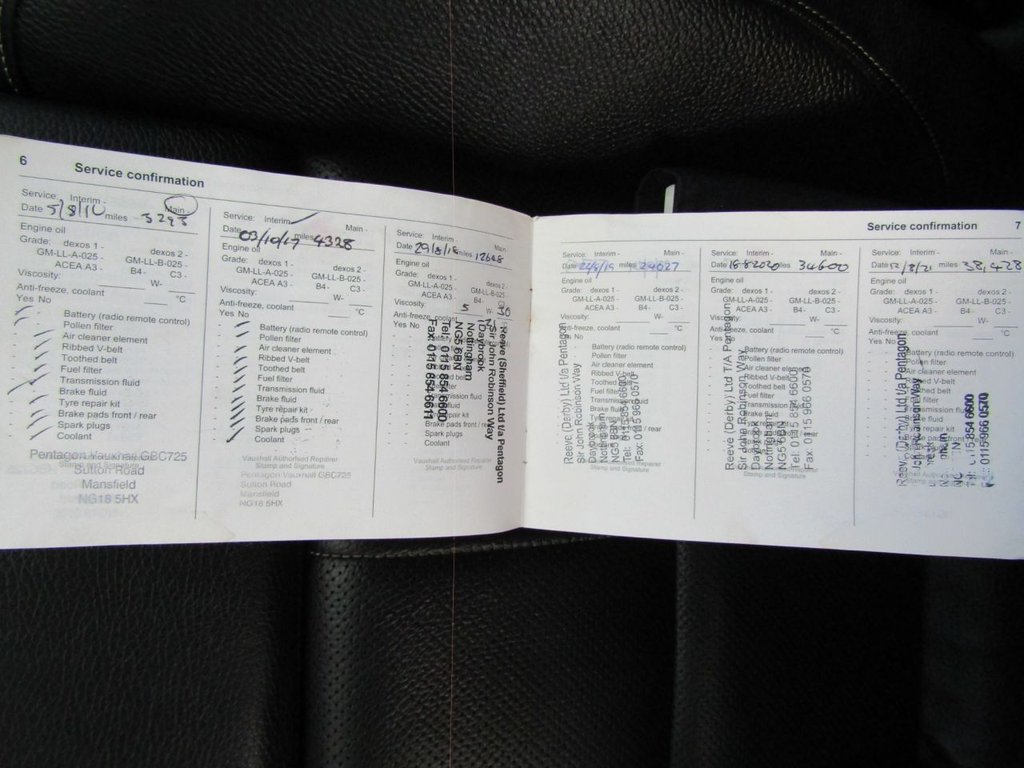 6
Service confirmation
Service: Interim - Main -
Date 5/8/16 miles 3293
Engine oil
Grade: dexos 1 - dexos 2 -
GM-LL-A-025 - GM-LL-B-025 -
ACEA A3 - B4 - C3 -
Viscosity: W-
Anti-freeze, coolant °C
Yes No
Battery (radio remote control)
Pollen filter
Air cleaner element
Ribbed V-belt
Toothed belt
Fuel filter
Transmission fluid
Brake fluid
Tyre repair kit
Brake pads front / rear
Spark plugs
Coolant
Pentagon Vauxhall GBC725
Sutton Road
Mansfield
NG18 5HX
Service: Interim Main -
Date 03/10/17 miles 4328
Engine oil
Grade: dexos 1 - dexos 2 -
GM-LL-A-025 - GM-LL-B-025 -
ACEA A3 - B4 - C3 -
Viscosity: W-
Anti-freeze, coolant °C
Yes No
Battery (radio remote control)
Pollen filter
Air cleaner element
Ribbed V-belt
Toothed belt
Fuel filter
Transmission fluid
Brake fluid
Tyre repair kit
Brake pads front / rear
Spark plugs
Coolant
Vauxhall Authorised Repairer
Stamp and Signature
Pentagon Vauxhall GBC725
Sutton Road
Mansfield
NG18 5HX
Service: Interim - Main -
Date 29/8/18 miles 12648
Engine oil
Grade: dexos 1 - dexos 2 -
GM-LL-A-025 - GM-LL-B-025 -
ACEA A3 - B4 - C3 -
Viscosity: 5 W- 30
Anti-freeze, coolant
Yes No
Brake pads front /
Spark plugs
Coolant
Reeve (Sheffield) Ltd t/a Pentagon
Sir John Robinson Way
Daybrook
Nottingham
NG5 6BN
Tel: 0115 854 6600
Fax: 0115 854 6611
Vauxhall Authorised Repairer
Stamp and Signature
Service confirmation
7
Service: Interim - Main -
Date 24/6/19 miles 24027
Engine oil
Grade: dexos 1 - dexos 2 -
GM-LL-A-025 - GM-LL-B-025 -
ACEA A3 - B4 - C3 -
Viscosity: W-
Anti-freeze, coolant °C
Yes No
Battery (radio remote control)
Pollen filter
Air cleaner element
Ribbed V-belt
Reeve (Derby) Ltd t/a Pentagon
Sir John Robinson Way
Daybrook
Nottingham
NG5 6BN
Tel: 0115 854 6600
Fax: 0115 966 0570
Stamp and Signature
Service: Interim - Main -
Date 18-8-2020 miles 34600
Engine oil
Grade: dexos 1 - dexos 2 -
GM-LL-A-025 - GM-LL-B-025 -
ACEA A3 - B4 - C3 -
Viscosity: W-
Anti-freeze, coolant °C
Yes No
Battery (radio remote control)
Pollen filter
Air cleaner element
Reeve (Derby) Ltd T/A Pentagon
Sir John Robinson Way
Daybrook
Nottingham
NG5 6BN
Tel: 0115 854 6600
Fax: 0115 966 0570
Stamp and Signature
Service: Interim - Main -
Date 12/8/21 miles 38,428
Engine oil
Grade: dexos 1 - dexos 2 -
GM-LL-A-025 - GM-LL-B-025 -
ACEA A3 - B4 - C3 -
Viscosity: W-
Anti-freeze, coolant °C
Yes No
Battery (radio remote control)
Reeve (Derby) Ltd t/a Pentagon
John Robinson Way
0115 854 6600
0115 966 0570